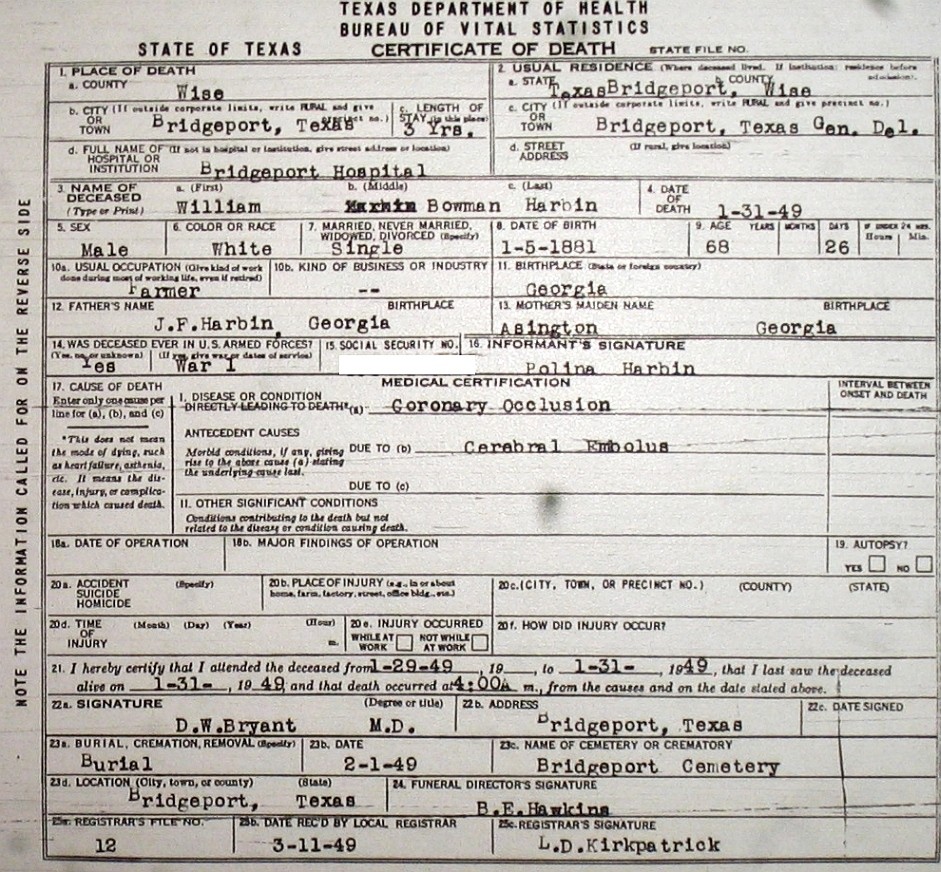 TEXAS DEPARTMENT OF HEALTH
BUREAU OF VITAL STATISTICS
STATE OF TEXAS CERTIFICATE OF DEATH STATE FILE NO.
NOTE THE INFORMATION CALLED FOR ON THE REVERSE SIDE
1. PLACE OF DEATH
a. COUNTY
Wise
2. USUAL RESIDENCE (Where deceased lived. If institution: residence before admission).
a. STATE b. COUNTY
Texas Bridgeport, Wise
b. CITY (If outside corporate limits, write RURAL and give precinct no.)
OR
TOWN Bridgeport, Texas
c. LENGTH OF
STAY (in this place)
3 Yrs.
c. CITY (If outside corporate limits, write RURAL and give precinct no.)
OR
TOWN Bridgeport, Texas Gen. Del.
d. FULL NAME OF (If not in hospital or institution, give street address or location)
HOSPITAL OR
INSTITUTION Bridgeport Hospital
d. STREET (If rural, give location)
ADDRESS
3. NAME OF DECEASED
(Type or Print)
a. (First) b. (Middle) c. (Last)
William Bowman Harbin
4. DATE
OF
DEATH 1-31-49
5. SEX
Male
6. COLOR OR RACE
White
7. MARRIED, NEVER MARRIED,
WIDOWED, DIVORCED (Specify)
Single
8. DATE OF BIRTH
1-5-1881
9. AGE YEARS MONTHS DAYS IF UNDER 24 HRS.
Hours Min.
68 26
10a. USUAL OCCUPATION (Give kind of work
done during most of working life, even if retired)
Farmer
10b. KIND OF BUSINESS OR INDUSTRY
--
11. BIRTHPLACE (State or foreign country)
Georgia
12. FATHER'S NAME BIRTHPLACE
J.F.Harbin, Georgia
13. MOTHER'S MAIDEN NAME BIRTHPLACE
Asington Georgia
14. WAS DECEASED EVER IN U.S. ARMED FORCES?
(Yes, no, or unknown) (If yes, give war or dates of service)
Yes War I
15. SOCIAL SECURITY NO.
16. INFORMANT'S SIGNATURE
Polina Harbin
MEDICAL CERTIFICATION
INTERVAL BETWEEN
ONSET AND DEATH
17. CAUSE OF DEATH
Enter only one cause per
line for (a), (b), and (c)
*This does not mean
the mode of dying, such
as heart failure, asthenia,
etc. It means the dis-
ease, injury, or complica-
tion which caused death.
I. DISEASE OR CONDITION
DIRECTLY LEADING TO DEATH* (a) Coronary Occlusion
ANTECEDENT CAUSES
Morbid conditions, if any, giving
rise to the above cause (a) stating
the underlying cause last.
DUE TO (b) Cerebral Embolus
DUE TO (c)
II. OTHER SIGNIFICANT CONDITIONS
Conditions contributing to the death but not
related to the disease or condition causing death.
18a. DATE OF OPERATION
18b. MAJOR FINDINGS OF OPERATION
19. AUTOPSY?
YES NO
20a. ACCIDENT (Specify)
SUICIDE
HOMICIDE
20b. PLACE OF INJURY (e.g., in or about
home, farm, factory, street, office bldg., etc.)
20c. (CITY, TOWN, OR PRECINCT NO.) (COUNTY) (STATE)
20d. TIME (Month) (Day) (Year) (Hour)
OF
INJURY m.
20e. INJURY OCCURRED
WHILE AT WORK NOT WHILE AT WORK
20f. HOW DID INJURY OCCUR?
21. I hereby certify that I attended the deceased from 1-29-49, 19 , to 1-31-, 1949, that I last saw the deceased
alive on 1-31-, 1949 and that death occurred at 4:00A m., from the causes and on the date stated above.
22a. SIGNATURE (Degree or title)
D.W.Bryant M.D.
22b. ADDRESS
Bridgeport, Texas
22c. DATE SIGNED
23a. BURIAL, CREMATION, REMOVAL (Specify)
Burial
23b. DATE
2-1-49
23c. NAME OF CEMETERY OR CREMATORY
Bridgeport Cemetery
23d. LOCATION (City, town, or county) (State)
Bridgeport, Texas
24. FUNERAL DIRECTOR'S SIGNATURE
B.E.Hawkins
25a. REGISTRAR'S FILE NO.
12
25b. DATE REC'D BY LOCAL REGISTRAR
3-11-49
25c. REGISTRAR'S SIGNATURE
L.D.Kirkpatrick